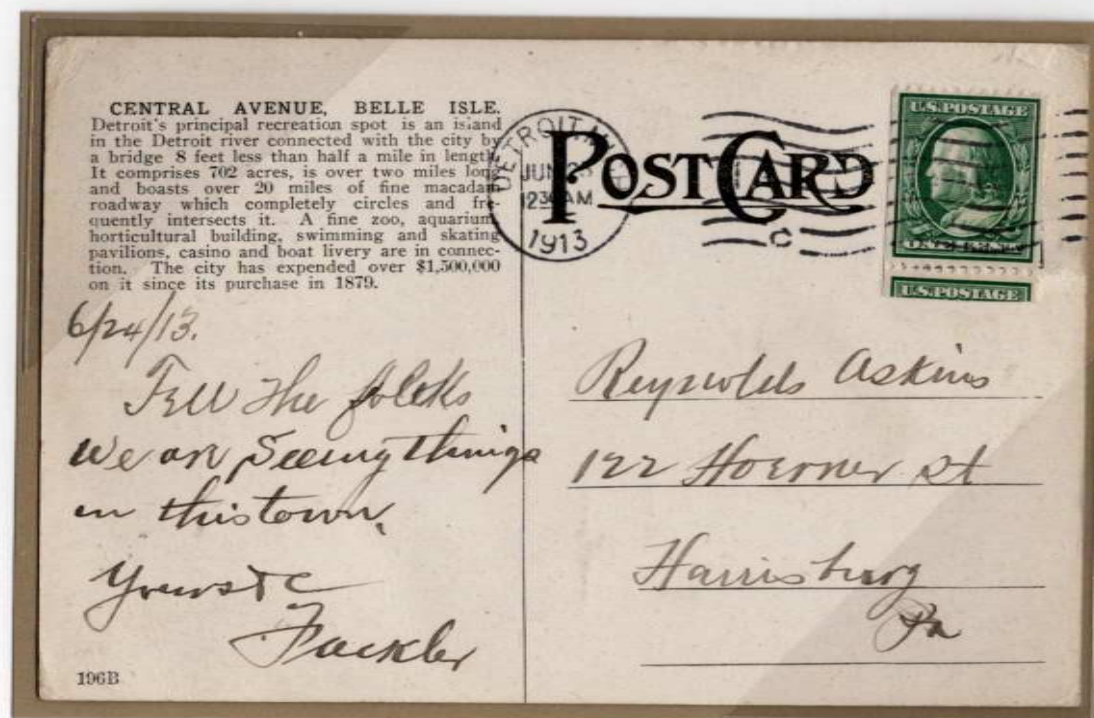 CENTRAL AVENUE, BELLE ISLE.
Detroit's principal recreation spot is an island
in the Detroit river connected with the city by
a bridge 8 feet less than half a mile in length.
It comprises 702 acres, is over two miles long
and boasts over 20 miles of fine macadam
roadway which completely circles and fre-
quently intersects it. A fine zoo, aquarium,
horticultural building, swimming and skating
pavilions, casino and boat livery are in connec-
tion. The city has expended over $1,500,000
on it since its purchase in 1879.
6/24/13.
Tell the folks
we are Seeing things
in this town.
Yours
Fackler
196B
POST CARD
DETROIT
JUN
1230 AM
1913
C
U.S. POSTAGE
U.S. POSTAGE
Reynolds Askins
122 Hoerner St
Harrisburg
Pa